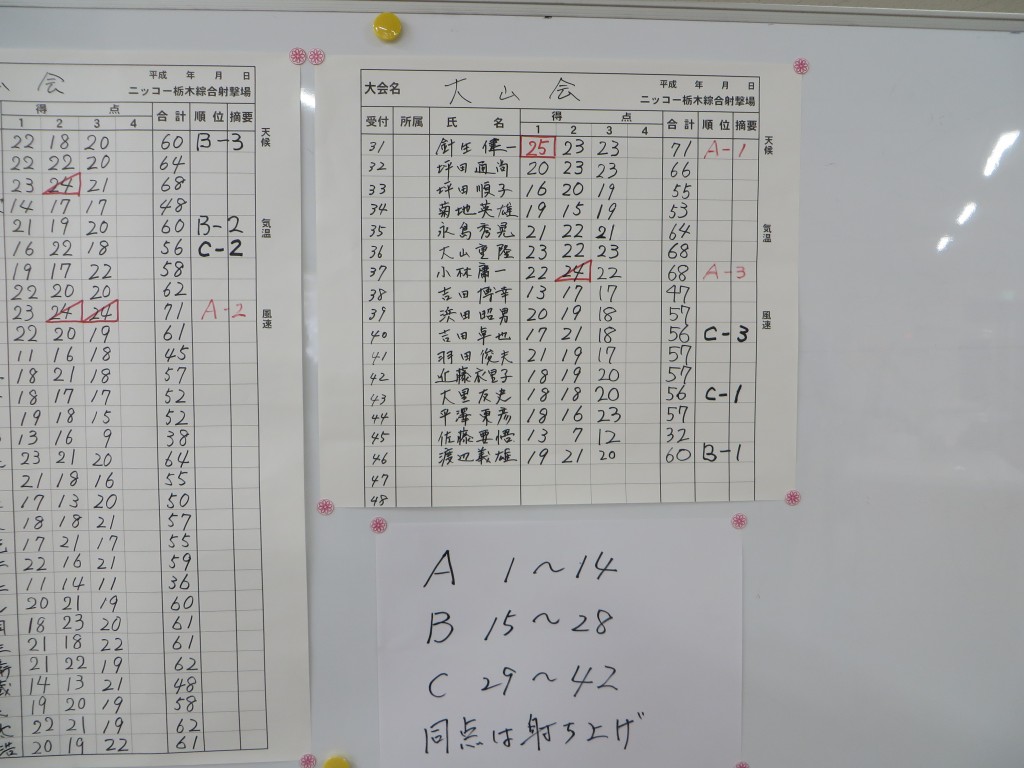 山会
平成 年 月 日
ニッコー栃木綜合射撃場
得 点 合計 順位 摘要
1 2 3 4
22 18 20 60 B-3
22 22 20 64
23 24 21 68
14 17 17 48
21 19 20 60 B-2
16 22 18 56 C-2
19 17 22 58
22 20 20 62
23 24 24 71 A-2
22 20 19 61
11 16 18 45
18 21 18 57
18 17 17 52
19 18 15 52
13 16 9 38
23 21 20 64
21 18 16 55
17 13 20 50
18 18 21 57
17 21 17 55
22 16 21 59
11 14 11 36
20 21 19 60
18 23 20 61
21 18 22 61
21 22 19 62
14 13 21 48
19 20 19 58
22 21 19 62
浩 20 19 22 61
天候
気温
風速
大会名 大山会
平成 年 月 日
ニッコー栃木綜合射撃場
受付 所属 氏名 得 点 合計 順位 摘要
1 2 3 4
31 針生健一 25 23 23 71 A-1
32 坪田直尚 20 23 23 66
33 坪田順子 16 20 19 55
34 菊地英雄 19 15 19 53
35 永島秀晃 21 22 21 64
36 大山重陸 23 22 23 68
37 小林庸一 22 24 22 68 A-3
38 吉田博幸 13 17 17 47
39 浜田昭男 20 19 18 57
40 吉田卓也 17 21 18 56 C-3
41 羽田俊夫 21 19 17 57
42 近藤衣里子 18 19 20 57
43 大里友 18 18 20 56 C-1
44 平澤東彦 18 16 23 57
45 佐藤要悟 13 7 12 32
46 渡辺義雄 19 21 20 60 B-1
47
48
天候
気温
風速
A 1～14
B 15～28
C 29～42
同点は射ち上げ